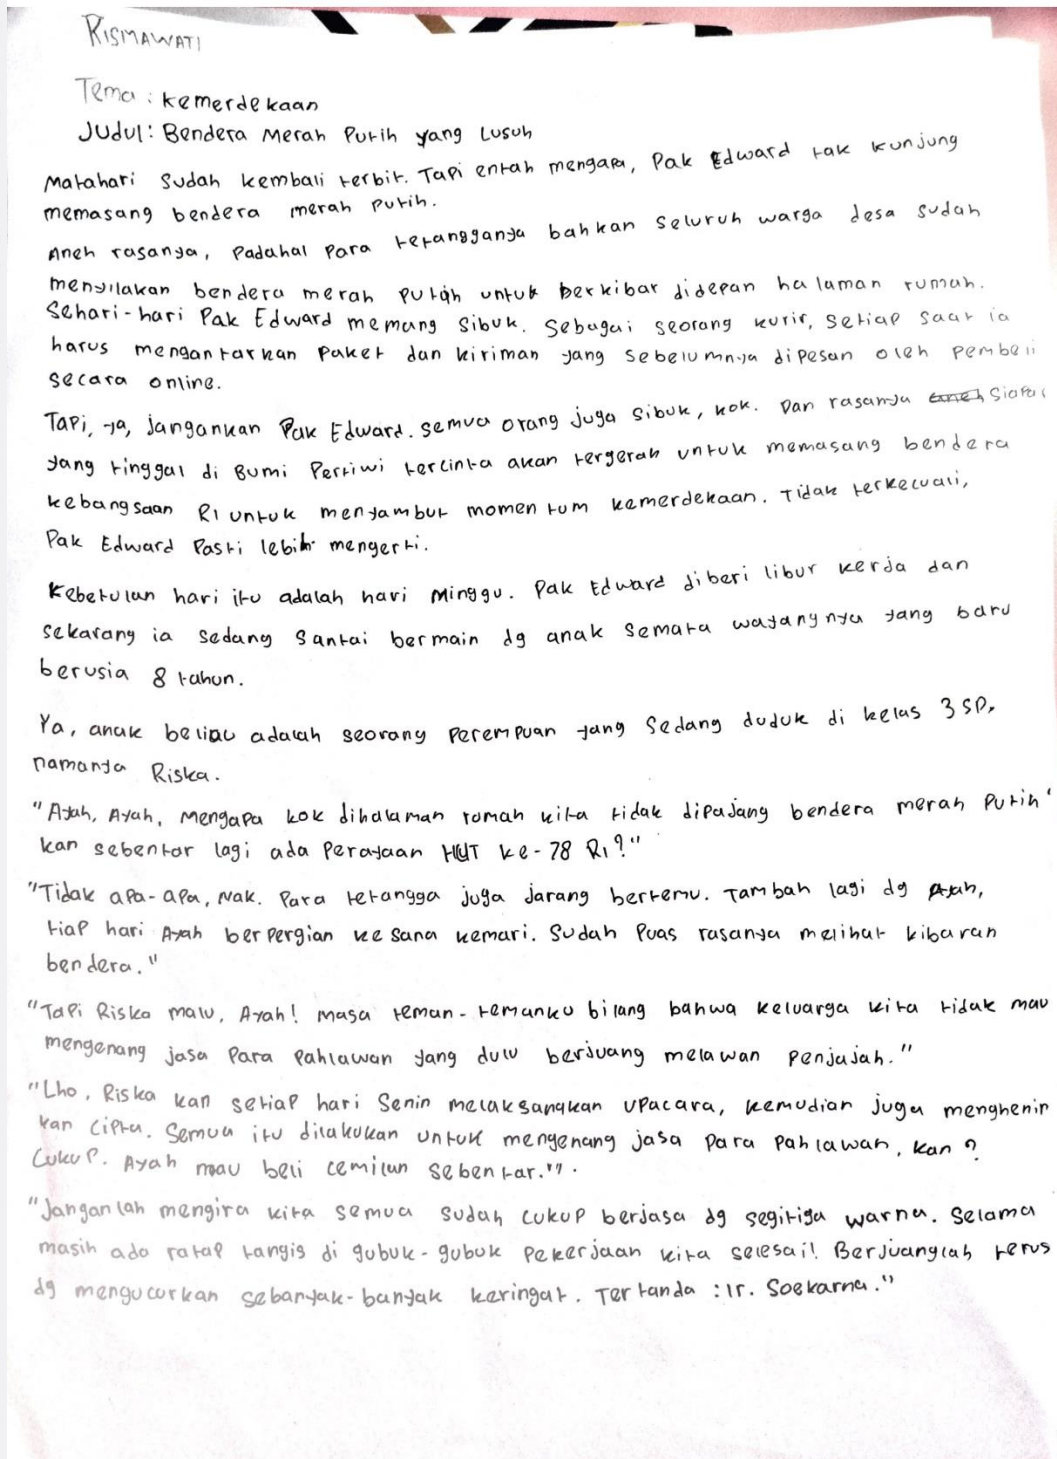 RISMAWATI
Tema : kemerdekaan
Judul: Bendera Merah Putih yang Lusuh
Matahari sudah kembali terbit. Tapi entah mengapa, Pak Edward tak kunjung
memasang bendera merah putih.
Aneh rasanya, Padahal Para tetangganya bahkan seluruh warga desa sudah
menyilakan bendera merah putih untuk berkibar didepan halaman rumah.
Sehari-hari Pak Edward memang sibuk. Sebagai seorang kurir, setiap saat ia
harus mengantarkan Paket dan kiriman yang sebelumnya dipesan oleh pembeli
secara online.
Tapi, ya, jangankan Pak Edward. semua orang juga sibuk, kok. Dan rasanya
yang tinggal di Bumi Pertiwi tercinta akan tergerak untuk memasang bendera
kebangsaan RI untuk menyambut momentum kemerdekaan. Tidak terkecuali,
Pak Edward Pasti lebih mengerti.
Kebetulan hari itu adalah hari Minggu. Pak Edward diberi libur kerja dan
sekarang ia sedang santai bermain dg anak semata wayangnya yang baru
berusia 8 tahun.
Ya, anak beliau adalah seorang Perempuan yang sedang duduk di kelas 3 SD,
namanya Riska.
"Ayah, Ayah, mengapa kok dihalaman rumah kita tidak dipajang bendera merah putih'
kan sebentar lagi ada Perayaan HUT ke-78 RI?"
"Tidak apa-apa, Nak. Para tetangga juga jarang bertemu. Tambah lagi dg Ayah,
tiap hari Ayah berpergian ke sana kemari. Sudah Puas rasanya melihat kibaran
bendera."
"Tapi Riska malu, Ayah! masa teman-temanku bilang bahwa keluarga kita tidak mau
mengenang jasa Para Pahlawan yang dulu berjuang melawan penjajah."
"Lho, Riska kan setiap hari Senin melaksanakan upacara, kemudian juga menghenin
kan cipta. Semua itu dilakukan untuk mengenang jasa para pahlawan, kan?
Cukup. Ayah mau beli cemilan sebentar.".
"Janganlah mengira kita semua sudah cukup berjasa dg segitiga warna. Selama
masih ada ratap tangis di gubuk-gubuk Pekerjaan kita selesai! Berjuanglah terus
dg mengucurkan sebanyak-banyak keringat. Tertanda : Ir. Soekarna."